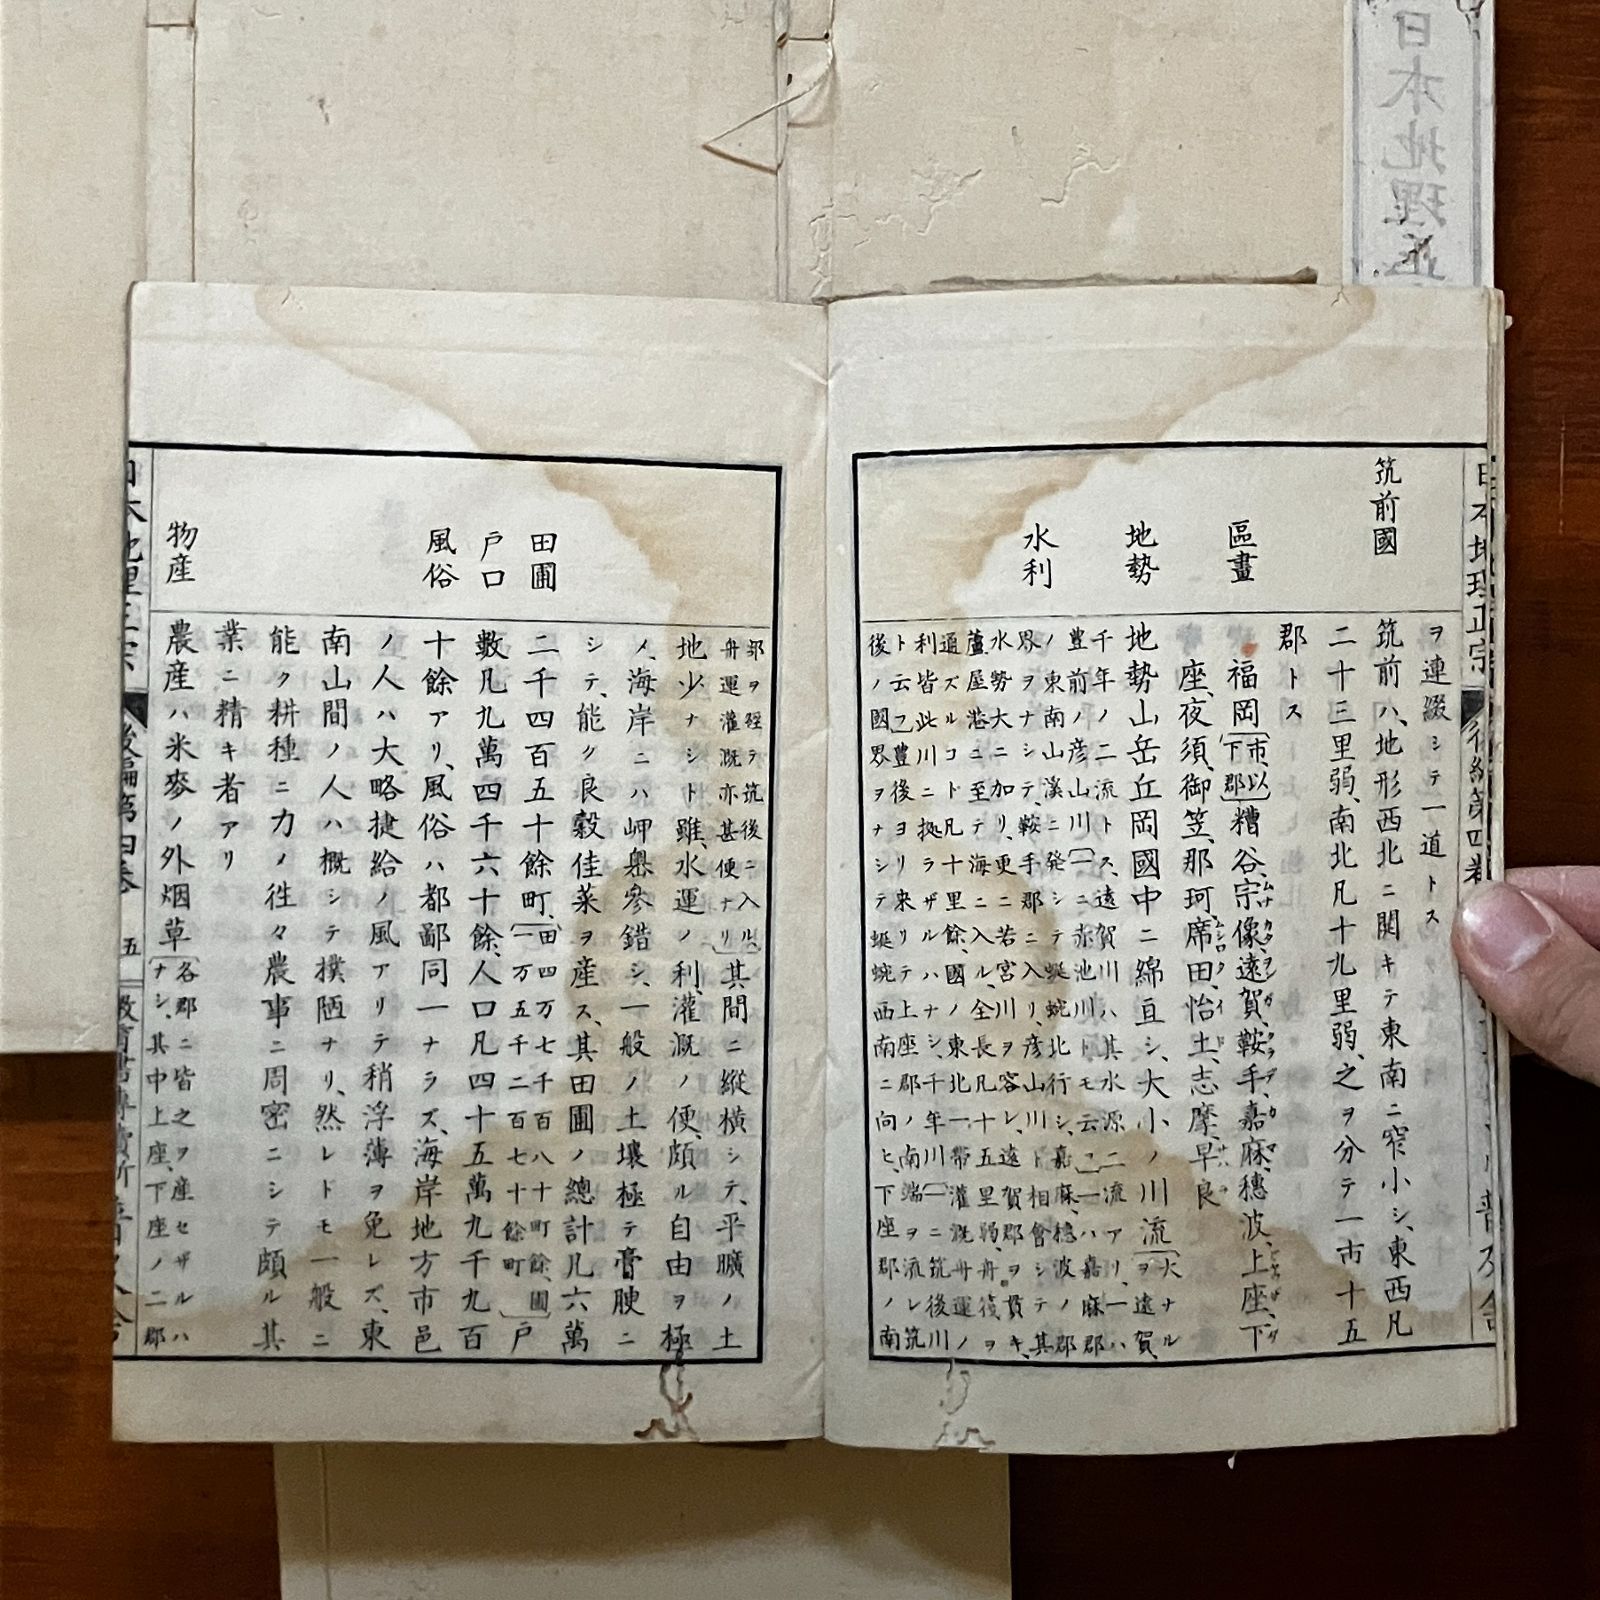 日本地理正
筑前國
ヲ連綴シテ一道トス
筑前ハ、地形西北ニ開キテ東南ニ窄小シ、東西凡
二十三里弱、南北凡十九里弱、之ヲ分テ一市十五
郡トス
區畫
福岡〔市、以下郡〕糟谷、宗像、遠賀、鞍手、嘉麻、穗波、上座、下
座、夜須、御笠、那珂、席田、怡土、志摩、早良
地勢
地勢山岳丘岡國中ニ綿亘シ、大小ノ川流〔大ナルヲ遠賀、
水利
千年ノ二流トス、遠賀川ハ其水源二流アリ、一ハ、
豊前ノ彦山川〔一ニ赤池川トモ云フ〕一ハ嘉麻郡
ノ東南山溪ニ発シテ蜒蜿北行シ、嘉麻、穗波ノ郡
界ヲナシテ、鞍手郡ニ入リ、彦山川ト相會シテ其
水勢大ニ加リ、更ニ若宮川ヲ容レ、遠賀郡ヲ貫キ、
蘆屋港ニ至テ海ニ入ル、全長凡十五里弱、舟筏ヲ
通ズルコト凡十里餘、國ノ東北一帶灌漑舟運ノ
利皆此川ニ拠ラザルハナシ、千年川〔一ニ筑後川
ト云フ〕豊後ヨリ来リテ上座郡ノ南端ヲ流レ筑
後ノ國界ヲナシテ蜒蜿西南ニ向ヒ、下座郡ノ南
郡ヲ経テ筑後ニ入ル、
舟運灌漑亦甚便ナリ〕其間ニ縱横シテ、平曠ノ土
地少ナシト雖、水運ノ利、灌漑ノ便、頗ル自由ヲ極
メ、海岸ニハ岬嶴參錯シ、一般ノ土壤極テ膏腴ニ
シテ、能ク良穀佳菜ヲ産ス、其田圃ノ總計凡六萬
田圃
二千四百五十餘町、〔田四万七千百八十町餘、圃一万五千二百七十餘町〕戸
戸口
數凡九萬四千六十餘、人口凡四十五萬九千九百
風俗
十餘アリ、風俗ハ都鄙同一ナラズ、海岸地方市邑
ノ人ハ大略捷給ノ風アリテ稍浮薄ヲ免レズ、東
南山間ノ人ハ概シテ撲陋ナリ、然レトモ一般ニ
能ク耕種ニ力ノ徃々農事ニ周密ニシテ頗ル其
業ニ精キ者アリ
物産
農産ハ米麥ノ外烟草〔各郡ニ皆之ヲ産セザルハナシ、其中上座、下座ノ二郡
後編第四巻 五